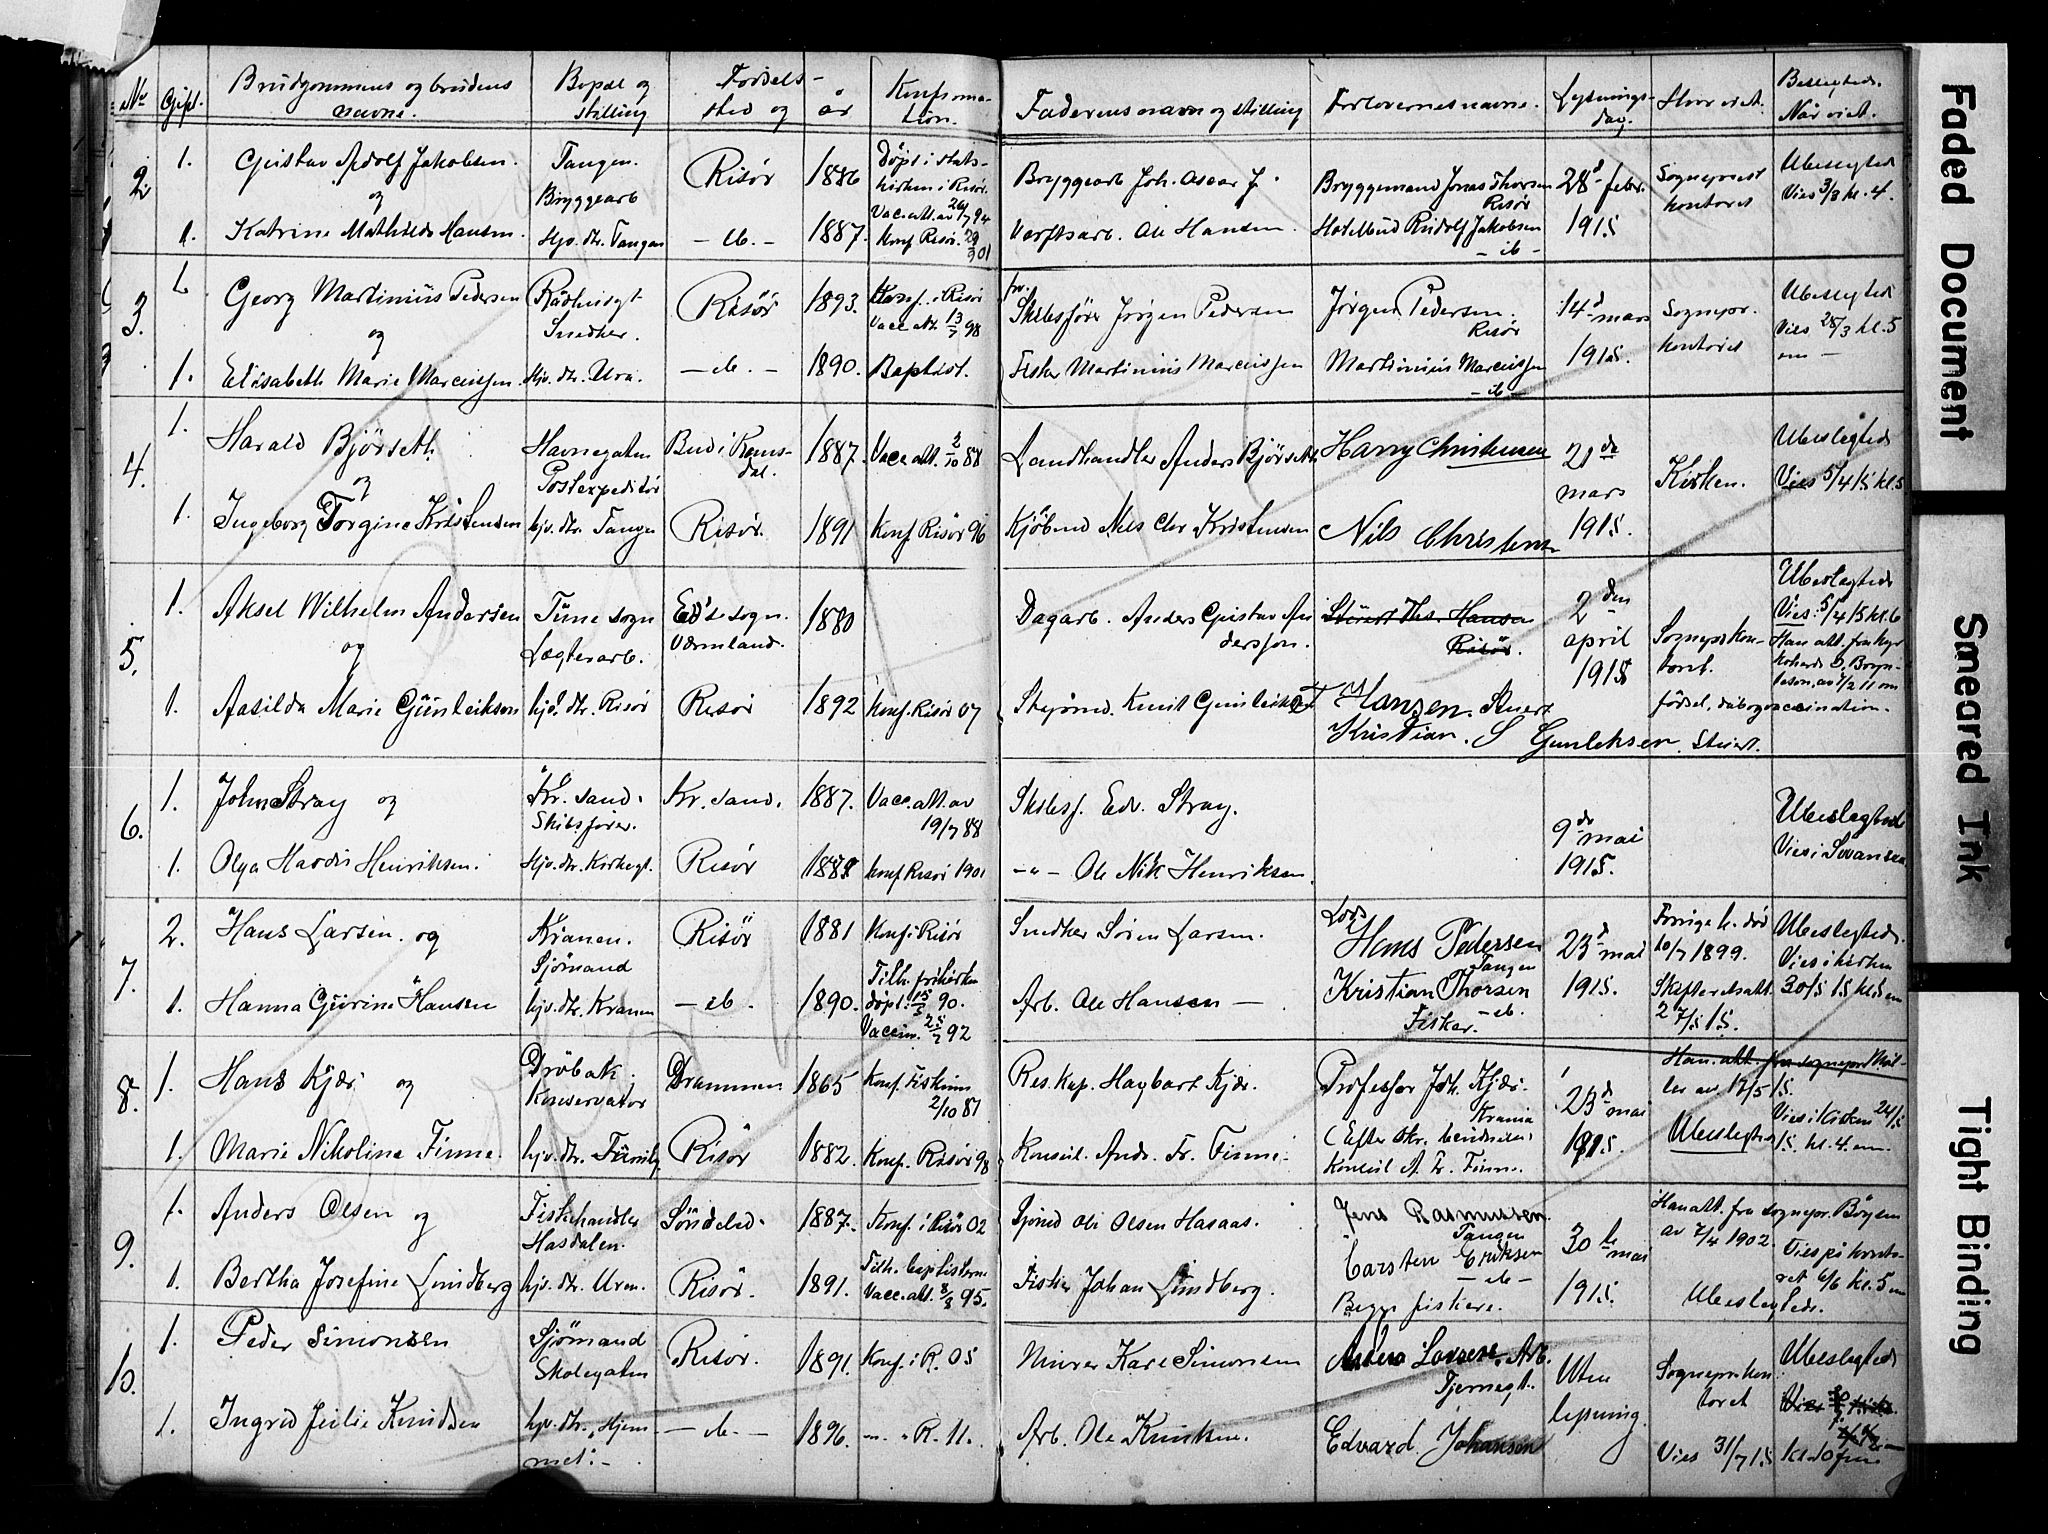 No. Gift. Brudgommens og brudens navne. Bopæl og stilling Fødselssted og år Konfirmation. Faderens navn og stilling Forlovernes navne. Lysningsdag. Hvor viet. Beslegtede. Når viet.
2. 1. Gustav Adolf Jakobsen. Tangen. Bryggearb Risør 1886 Døpt i statskirken i Risør. Vac. att. av Bryggearb Joh. Oscar J. Bryggemand Jonas Thorsen Risør 28d febr. 1915 Sogneprest kontoret Ubeslegted Vies 3/3 kl. 4.
og
1. Katrine Mathilde Hansen. Hjv. dtr. Tangen — ib. — 1887. Konf Risør. Verftsarb. Ole Hansen. Hotelbud Rudolf Jakobsen — ib —
3. Georg Martinius Pedersen Rådhusgt Snedker. Risør 1893. Konf. i Risør Vacc. att. 13/7 98 Skibsfører Jørgen Pedersen Jørgen Pedersen. Risør 14d mars 1915. Sognepr. kontoret Ubeslegted Vies 28/3 kl. 5 em —
og
1. Elisabeth Marie Marcussen. Hjv. dtr. Ura. — ib. — 1890. Baptist. Fisker Martinius Marcussen Martinius Marcussen — ib —
4. 1. Harald Bjørseth Havnegaten Postexpeditør Bud i Romsdal. 1887. Vacc. att. 2/10 88 Landhandler Anders Bjørseth Harry Christensen 21de mars 1915. Kirken. Ubeslegted Vies 5/4 15 kl. 5
og
1. Ingeborg Torgine Kristensen hjv. dtr. Tangen Risør. 1891 Konf. Risør 96 Kjøbmd Nils Chr Kristensen Nils Christensen
5. 1. Aksel Wilhelm Andersen Tune sogn Lægterarb. Ed's sogn. Værmland. 1880 Dagarb. Anders Gustav Andersson. Risør. 2den april 1915 Sogneprskontoret. Ubeslegted Vies: 5/4 15 kl. 6 Han att. fra
og
1. Aasilda Marie Gunleiksen hjv. dtr. Risør Risør 1892 Konf. Risør 07 Knut Hansen. Stuert fødsel, dåb og vaccination.
Kristian. S Gunleksen. Stuert.
6. 1. John Stray og Kr. sand. Skibsfører. Kr. sand. 1887. Vacc. att. av 19/7 88 Skibsf. Edv. Stray. 9de mai 1915. Ubeslegted Vies i Swansea
1. Olga Hardis Henriksen. Hjv. dtr. Kirkegt. Risør Konf Risør 1901 —"— Ole Nik Henriksen.
7. 2. Hans Larsen. og Kranen. Sjømand Risør 1881 Konf. i Risør Snedker Søren Larsen. Lods Hans Pedersen Tangen 23d mai 1915. Forrige h. død 10/7 1899. Skifteretsatt. Ubeslegted. Vies i kirken 30/5 15 kl. 5 em
1. Hanna Guirine Hansen hjv. dtr. Kranen — ib. 1890. Tilh. frikirken døpt 15/5 90. Vaccin. 92 Arb. Ole Hansen — Kristian Thorsen — ib. Fisker.
8. 1. Hans Kjær og Drøbak. Konservator Drammen 1865 Konf. 2/10 81 Res. kap. Hagbart Kjær. Professor Joh. Kjær. Krania 23d mai 1915. Han. att. fra sognepr. Møller av 17/5 15. Ubeslegted Vies i kirken 24/5 15. kl. 4. em.
1. Marie Nikoline Finne. hjv. dtr. Risør 1882. Konf. Risør 98 Konsul. Andr. Fr. Finne. Konsul A. Fr. Finne.
9. 1. Anders Olsen og Fiskehandler Hasdalen. Søndeled. 1887. Konf. i Risør 02 Sjømd Ole Olsen Hasaas. Jens Rasmussen. Tangen 30te mai 1915. Han att. fra sognepr. Bøysen av 7/4 1902. Vies på kontoret 6/6 kl. 5 em
1. Bertha Josefine Lundberg hjv. dtr. Uren. Risør. 1891. Tilh. baptisterne Vacc. att. 8/8 95. Fisker Johan Lundberg. Carsten Eriksen — ib — Begge fiskere. Ubeslegtede.
10. 1. Peder Simonsen Sjømand Skolegaten Risør. 1891. Konf. i R. 05 Murer Kare Simonsen Larsen. Arb. Tjernegt. Uten lysning. Sogneprkontoret Ubeslegted
1. Ingrid Julie Knudsen hjv. dtr. Hjemmet. — — ib. — 1896. —"— R. 11. Arb. Ole Knudsen. Edvard. Johansen Vies 31/7 15 kl. 10 fm
Faded Document
Smeared Ink
Tight Binding